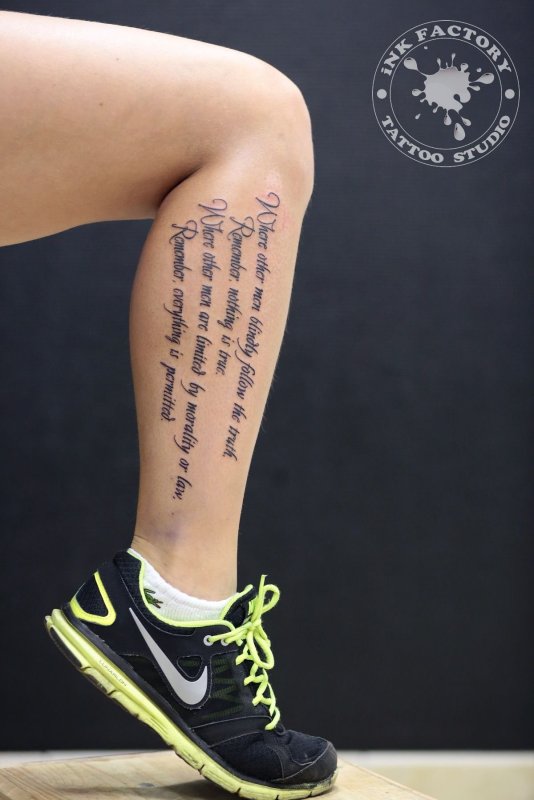 iNK FACTORY
TATTOO STUDIO
Where other men blindly follow the truth,
Remember, nothing is true.
Where other men are limited by morality or law,
Remember, everything is permitted.